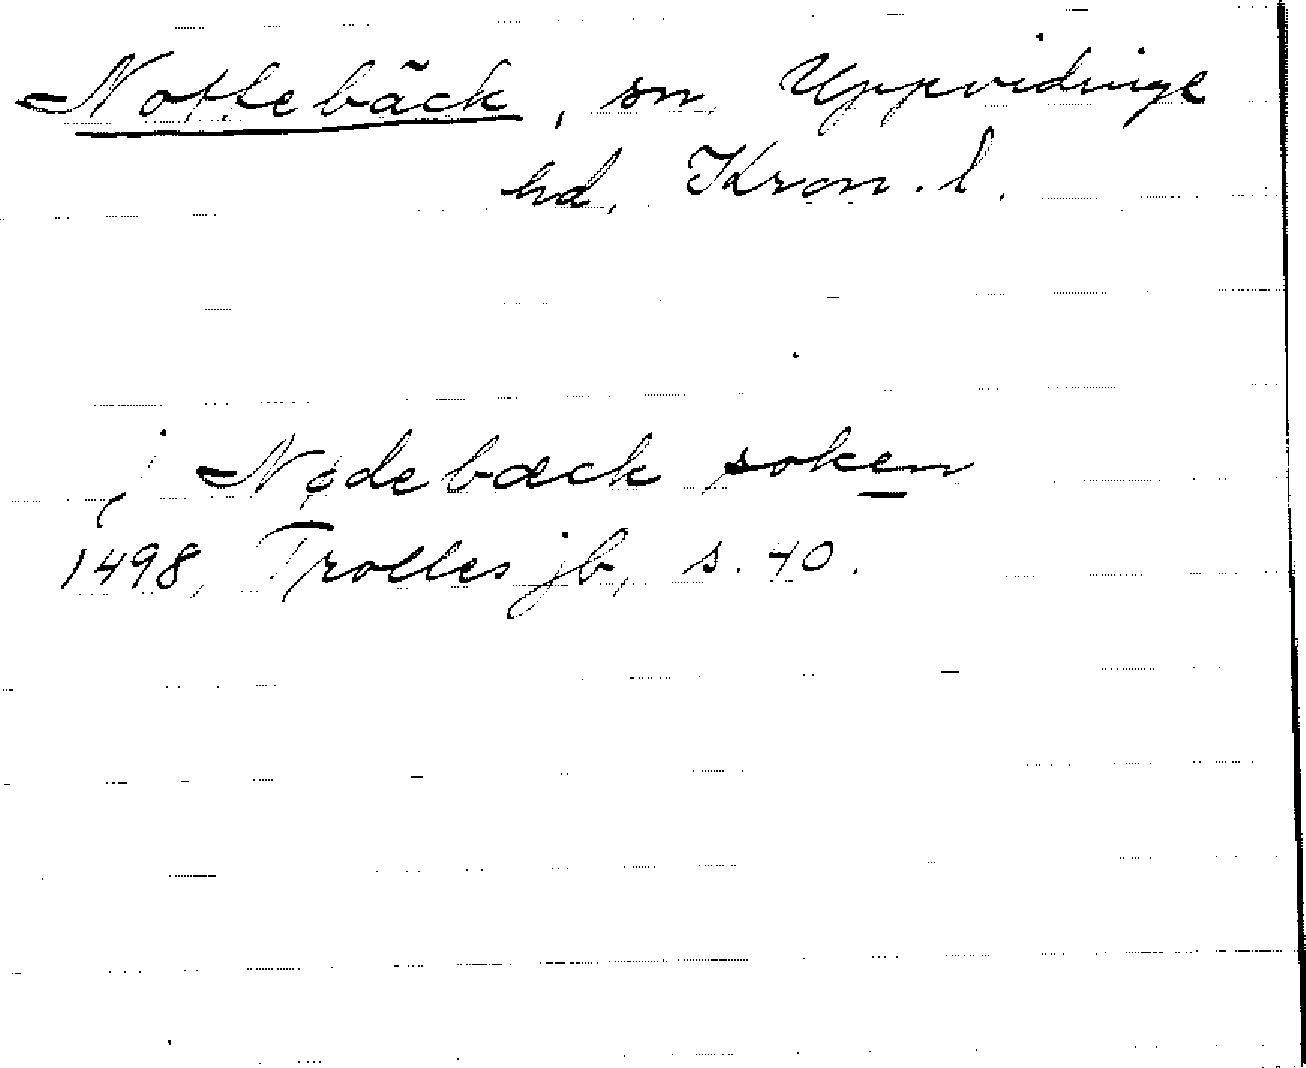 Nottebäck, sn, Uppvidinge
hd, Kron. l.
j Nødebæck soken
1498, Trolles jb, s. 40.